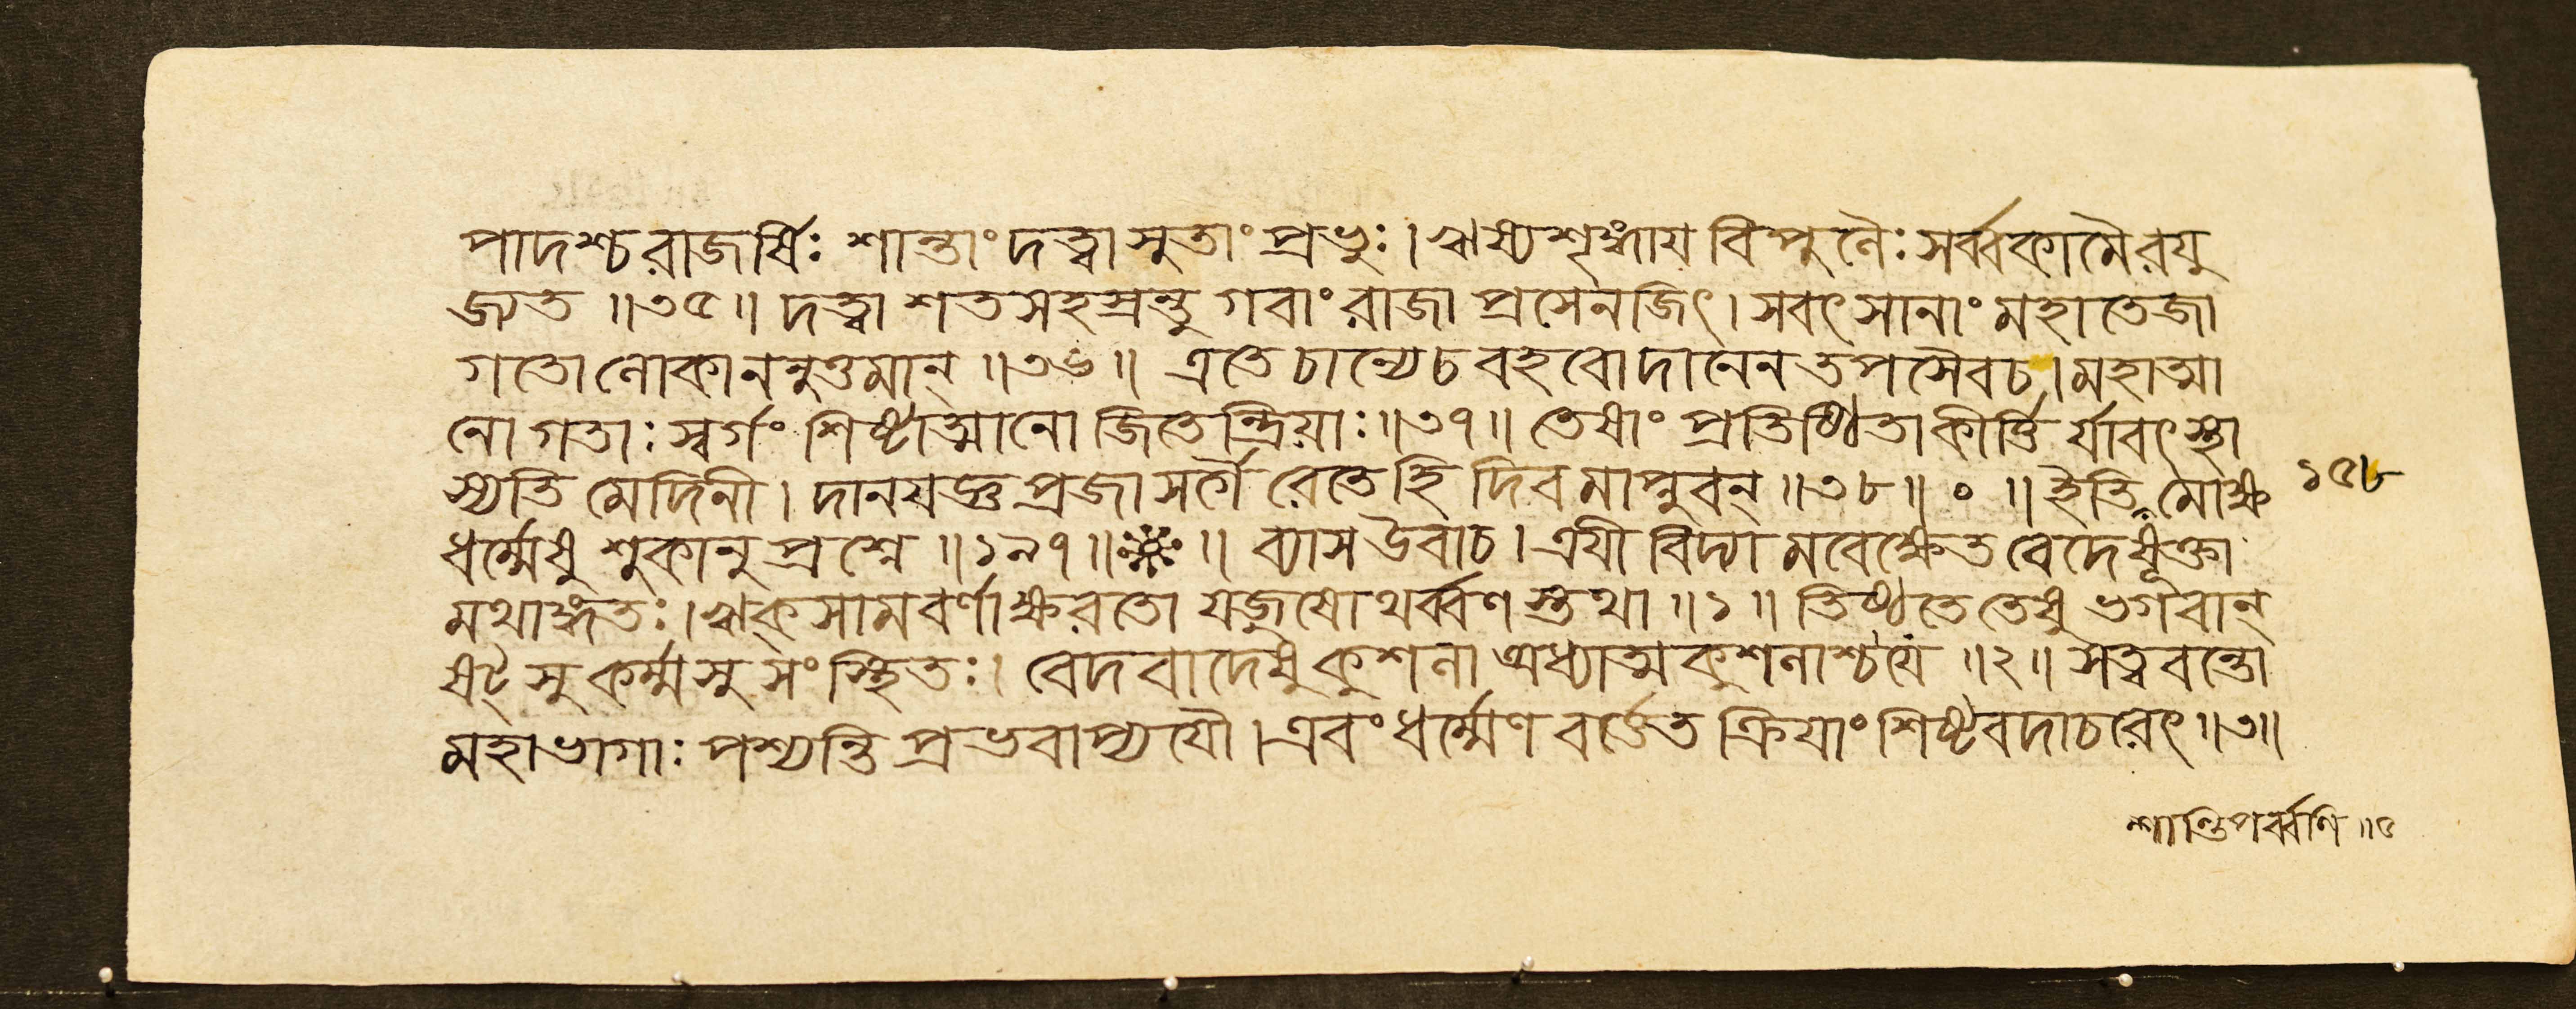 পাদশ্চরাজর্ষিঃ শান্তাং দত্ত্বা সুতাং প্রভুঃ। ঋষ্যশৃঙ্গায় বিপুলৈঃ সর্ব্বকামৈরযু
জ্যত ॥৩৫॥ দত্ত্বা শতসহস্রন্তু গবাং রাজা প্রসেনজিৎ। সবৎসানাং মহাতেজা
গতো লোকাননুত্তমান্ ॥৩৬॥ এতে চান্যেচ বহবো দানেন তপসৈবচ। মহাত্মা
নো গতাঃ স্বর্গং শিষ্টাত্মানো জিতেন্দ্রিয়াঃ ॥৩৭॥ তেষাং প্রতিষ্ঠিতা কীর্ত্তি র্যাবৎ স্থা
স্যতি মেদিনী। দানযজ্ঞপ্রজাসর্গৈ রেতেহি দিবমাপ্নুবন্ ॥৩৮॥ ০ ॥ ইতি মোক্ষ
ধর্ম্মেষু শুকানুপ্রশ্নে ॥১৯৭॥ ॥ ব্যাস উবাচ। ত্রয়ী বিদ্যা মবেক্ষেত বেদেষূক্তা
মথাঙ্গতঃ। ঋক্ সামবর্ণাক্ষরতো যজুষোথর্ব্বণস্তথা ॥১॥ তিষ্ঠতে তেষু ভগবান্
ষট্ সু কর্ম্মসু সংস্থিতঃ। বেদবাদেষু কুশলা অধ্যাত্মকুশলাশ্চযে ॥২॥ সত্ত্ববন্তো
মহাভাগাঃ পশ্যন্তি প্রভবাপ্যযৌ। এবং ধর্ম্মেণ বর্ত্তেত ক্রিয়াং শিষ্টবদাচরেৎ ॥৩॥
১৫৮
শান্তিপর্ব্বণি ॥